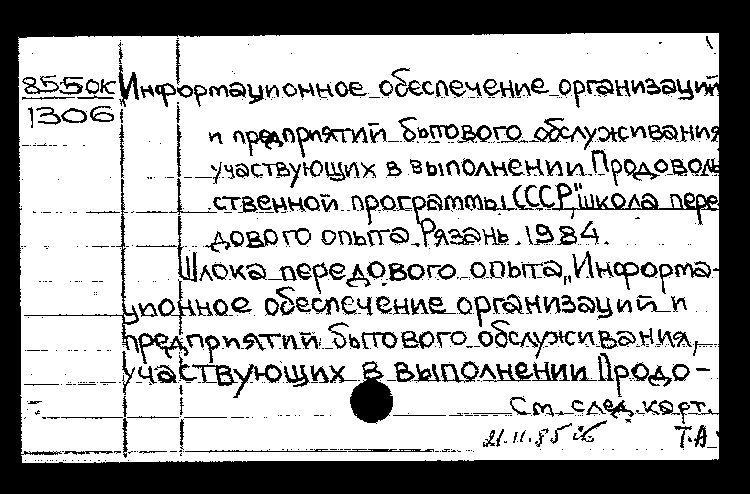 85.5ОК Информационное обеспечение организаций
1306
и предприятий бытового обслуживания
участвующих в выполнении Продоволь
ственной программы СССР, школа пере
дового опыта. Рязань. 1984.
Шлока передового опыта „Информа-
ционное обеспечение организаций и
предприятий бытового обслуживания,
участвующих в выполнении Продо-
См. след. карт.
21.11.85 Т.А.